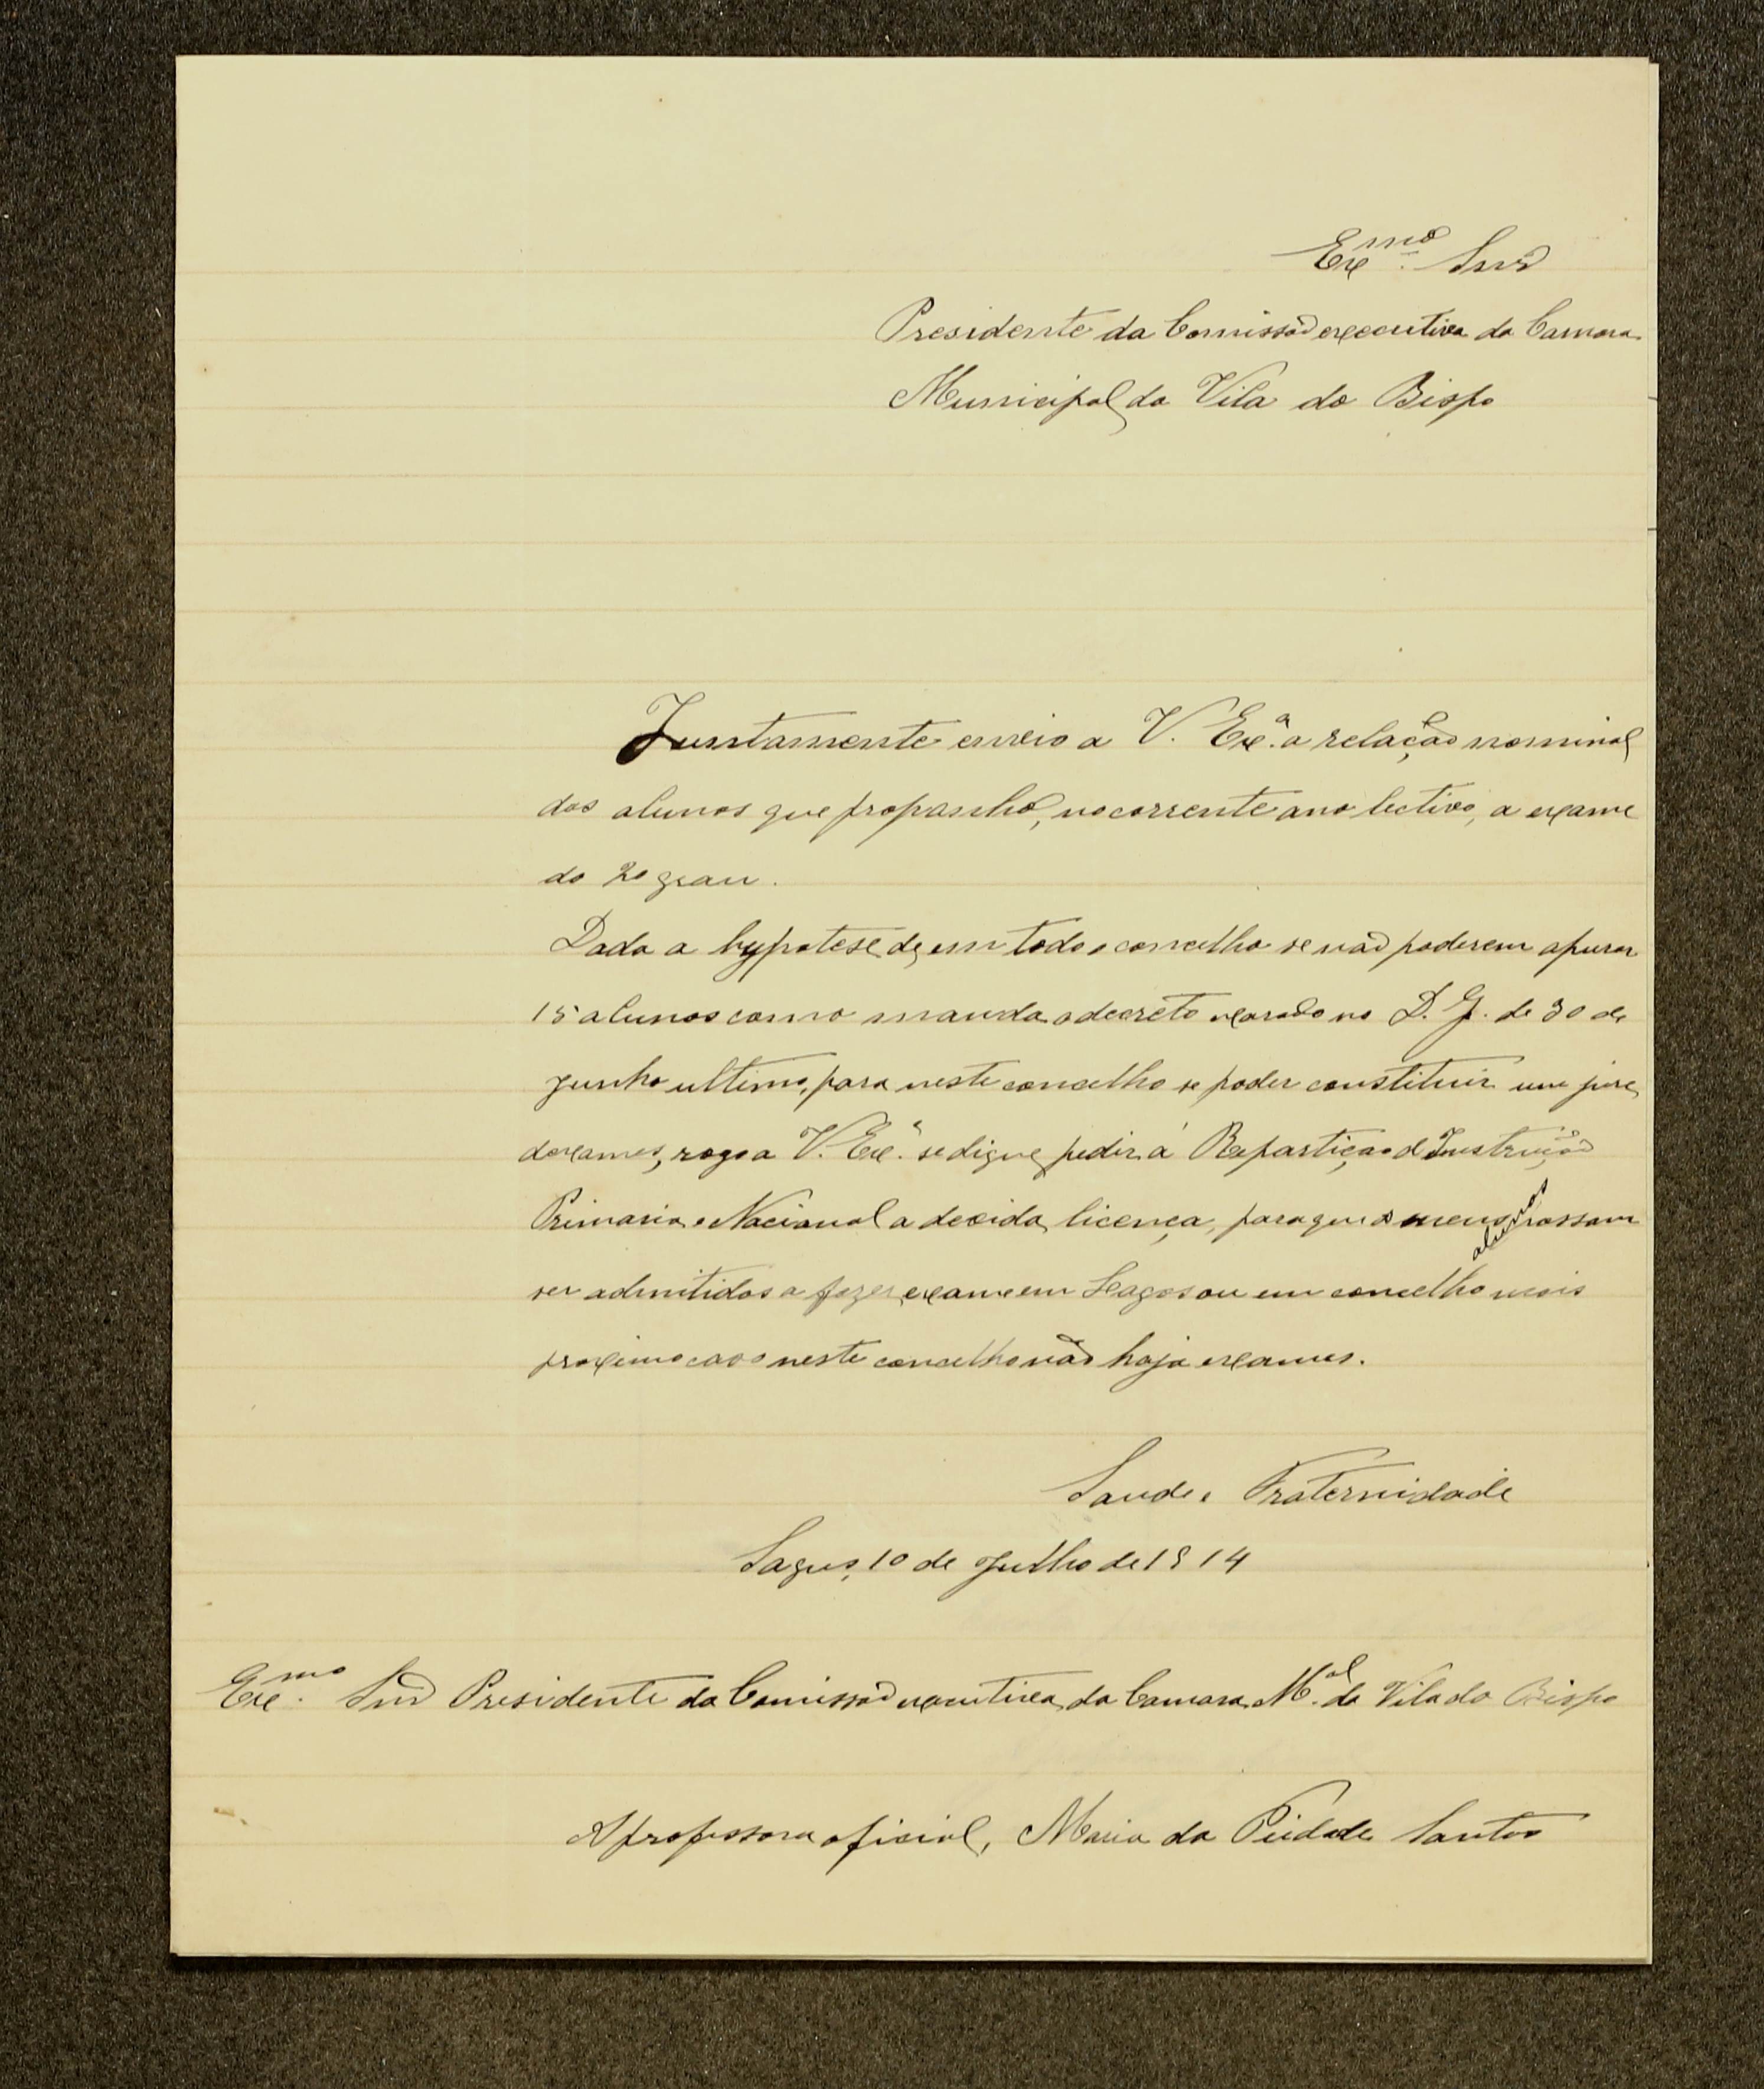 Exmo. Snr
Presidente da Comissão executiva da Camara
Municipal da Vila do Bispo
Juntamente envio a V. Exª. a relação nominal
dos alunos que propanho, no corrente ano lectivo, a exame
do 2º grau.
Dada a hypotese de em todo o concelho se não poderem apurar
15 alunos como manda o decreto no D. G. de 30 de
junho ultimo, para neste concelho se poder constituir um jure
de exames, rogo a V. Exª. se digne pedir á Repartição d Instrução
Primaria e Nacional a devida licença, para que os meus alunos possam
ser admitidos a fazer exame em Lagos ou em concelho mais
proximo caso neste concelho não haja exames.
Saude e Fraternidade
Sagres, 10 de Julho de 1914
Exmo. Snr Presidente da Comissão executiva da Camara M.al da Vila do Bispo
A professora oficial, Maria da Piedade Santos